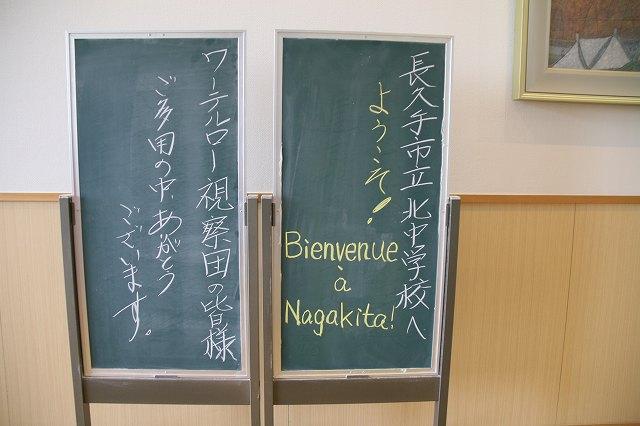 長久手市立北中学校へ
ようこそ!
Bienvenue
à
Nagakita!
ワーテルロー視察団の皆様
ご多用の中、ありがとう
ございます。